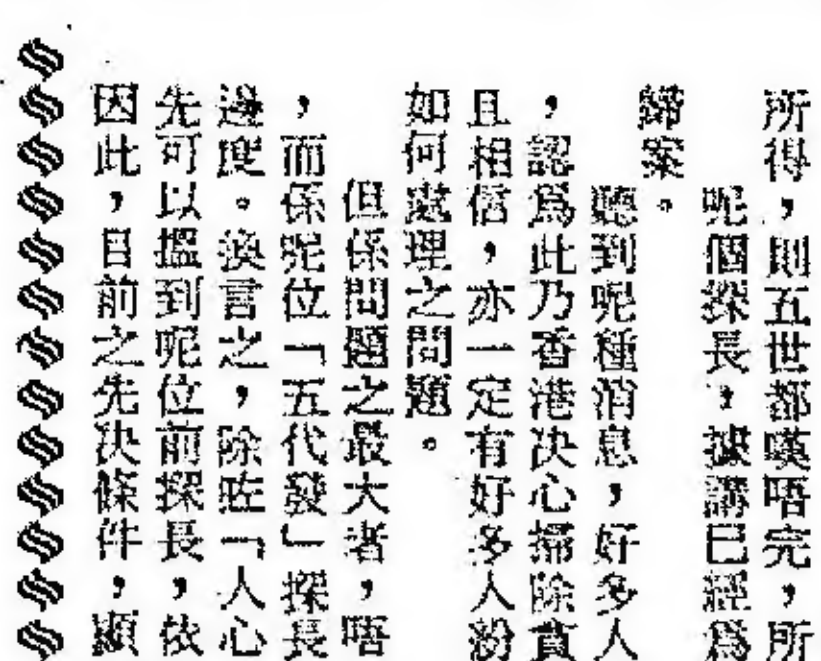 所得，則五世都嘆唔完，所
呢個探長，據講已經爲
歸案。
聽到呢種消息，好多人
，認爲此乃香港决心掃除貪
且相信，亦一定有好多人紛
如何處理之問題。
但係問題之最大者，唔
，而係呢位「五代發」探長
過度。換言之，除咗「人心
先可以搵到呢位前探長，依
因此，目前之先决條件，顯